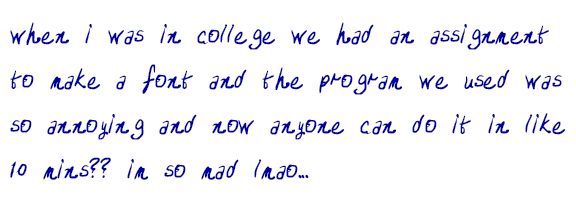 when i was in college we had an assignment
to make a font and the program we used was
so annoying and now anyone can do it in like
10 mins?? im so mad lmao...